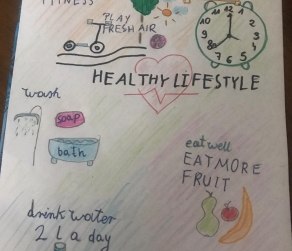 FITNESS
PLAY
FRESH AIR
12
1
2
3
4
5
6
7
8
9
10
11
HEALTHY LIFESTYLE
wash
soap
bath
eat well
EAT MORE
FRUIT
drink water
2 l a day